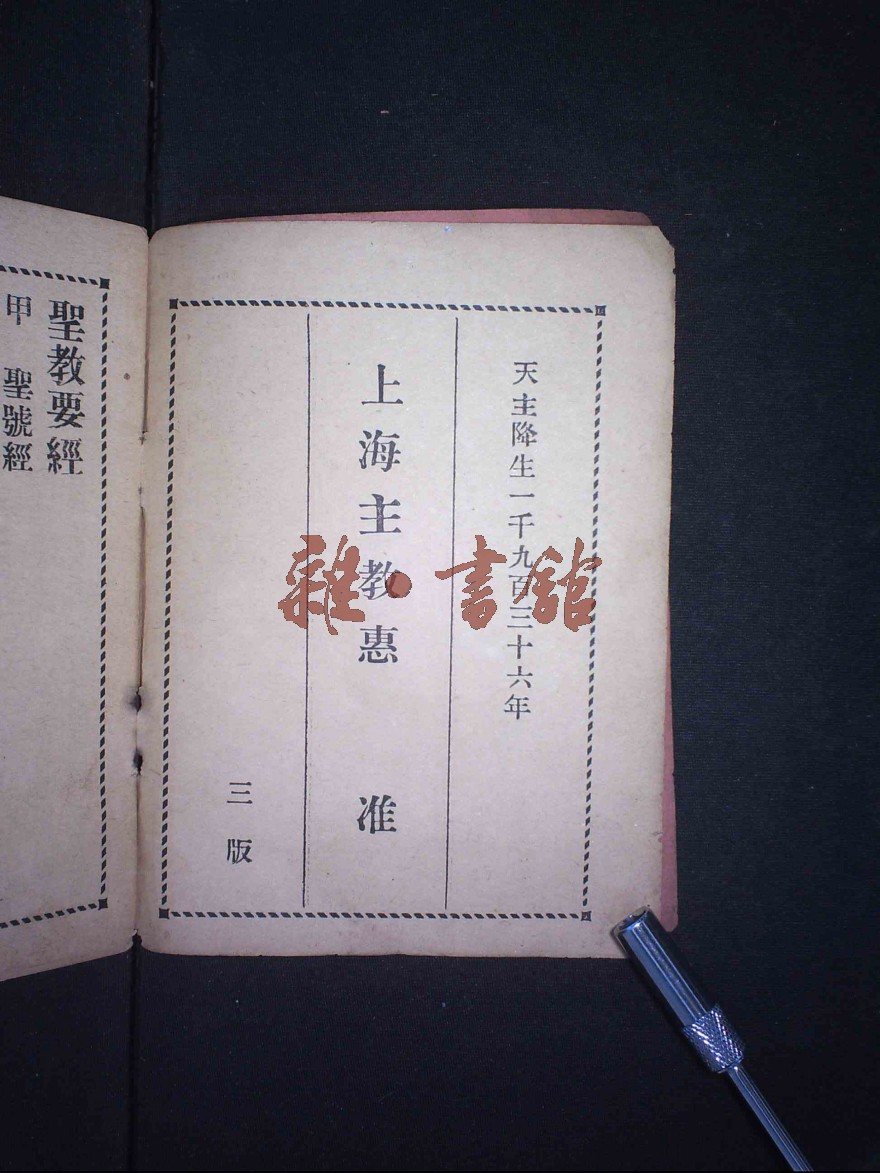 天主降生一千九百三十六年
上海主教惠 准
三版
聖教要經
甲 聖號經
雜·書館